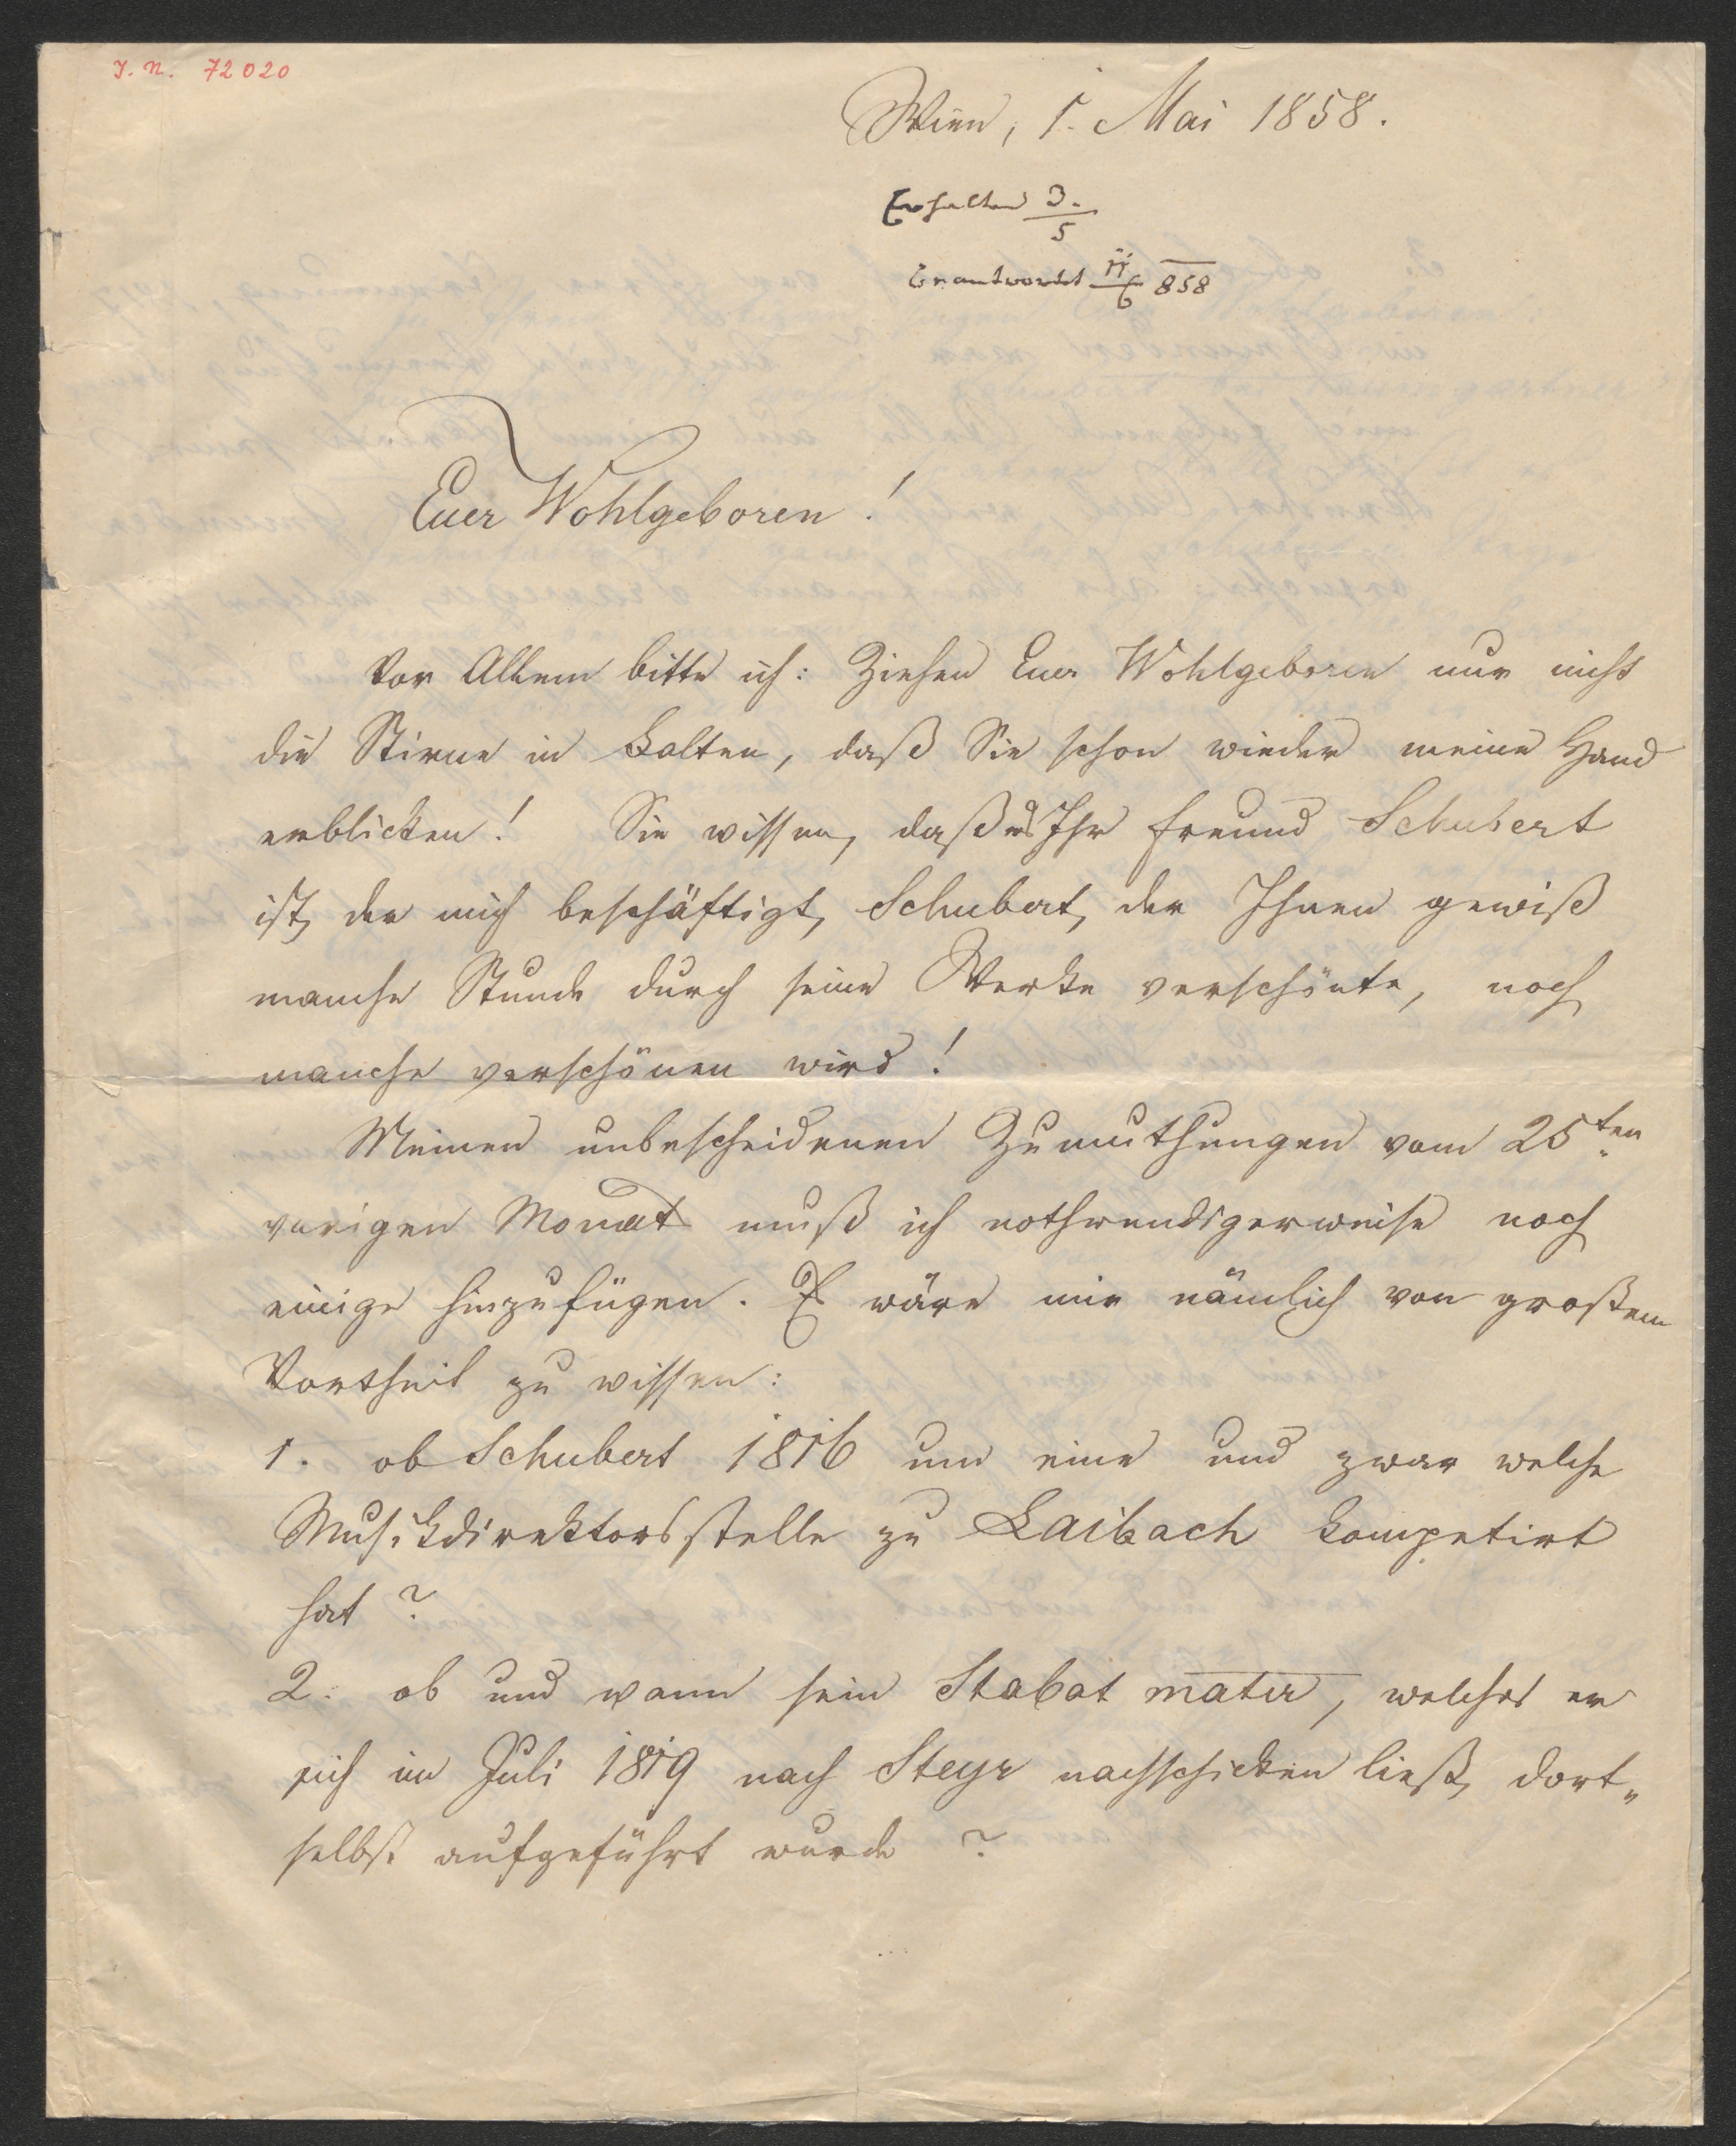 J. N. 72020
Wien, 1. Mai 1858.
Erhalten 3./5
Beantwortet 11/6 858
Euer Wohlgeboren!
Vor Allem bitte ich: Ziehen Euer Wohlgeboren nur nicht
die Stirne in Falten, daß Sie schon wieder meine Hand
erblicken! Sie wissen, daß es Ihr Freund Schubert
ist, der mich beschäftigt, Schubert, der Ihnen gewiß
manche Stunde durch seine Werke verschönte, noch
manche verschönen wird!
Meinen unbescheidenen Zumuthungen vom 25ten
vorigen Monat muß ich nothwendigerweise noch
einige hinzufügen. Es wäre mir nämlich von großem
Vortheil zu wissen:
1. ob Schubert 1816 um eine und zwar welche
Musikdirektorsstelle zu Laibach kompetirt
hat?
2. ob und wann sein Stabat mater, welches er
sich im Juli 1819 nach Steyr nachschicken ließ, dort„
selbst aufgeführt wurde?